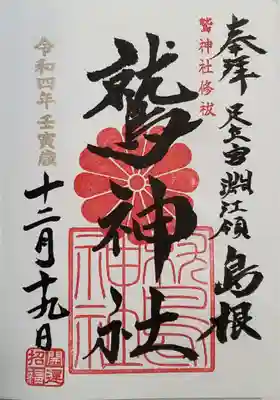 奉拝 足立宮淵江領 島根
鷲神社修祓
鷲神社
令和四年壬寅歳
十二月十九日
開運
招福